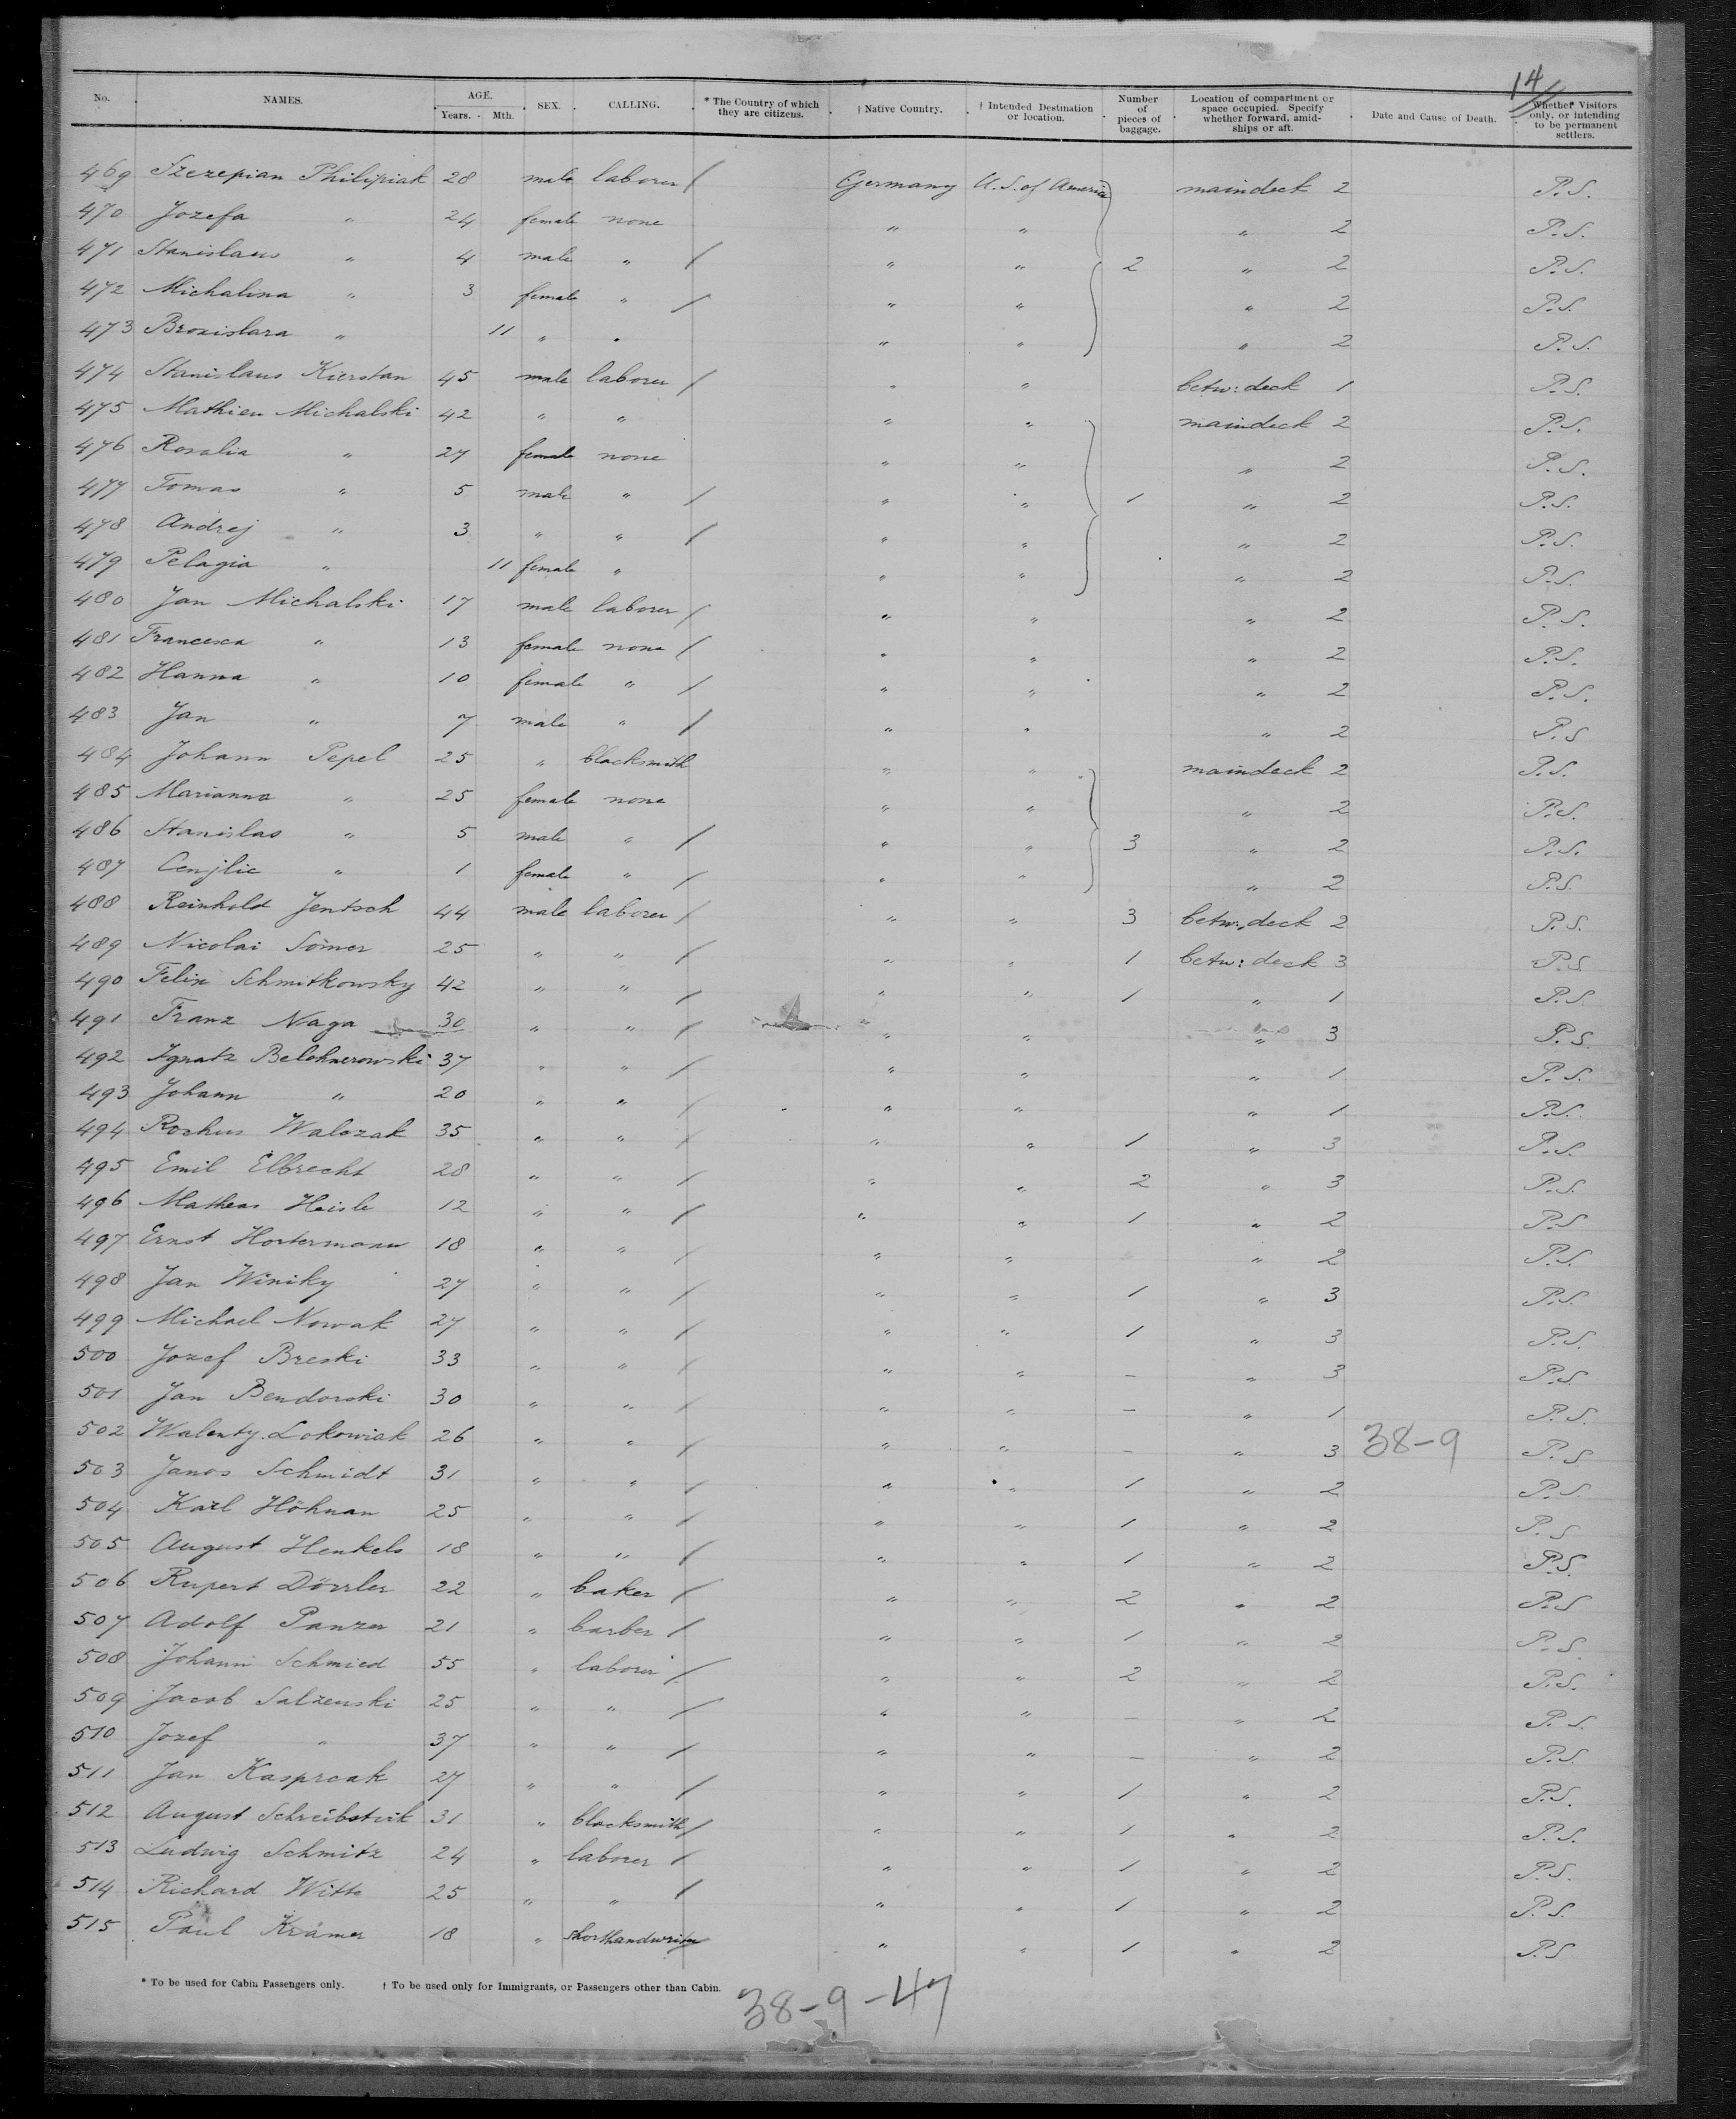 14
No. NAMES. AGE. Years. Mth. SEX. CALLING. * The Country of which they are citizens. † Native Country. † Intended Destination or location. Number of pieces of baggage. Location of compartment or space occupied. Specify whether forward, amidships or aft. Date and Cause of Death. Whether Visitors only, or intending to be permanent settlers.
469 Szezepian Philipiak 28 male laborer / Germany U.S. of America maindeck 2 P.S.
470 Jozefa " 24 female none " " " 2 P.S.
471 Stanislaus " 4 male " / " " 2 " 2 P.S.
472 Michalina " 3 female " / " " " 2 P.S.
473 Bronislara " 11 " " " " " 2 P.S.
474 Stanislaus Kierstan 45 male laborer / " " betw: deck 1 P.S.
475 Mathieu Michalski 42 " " " " maindeck 2 P.S.
476 Rosalia " 27 female none " " " 2 P.S.
477 Tomas " 5 male " / " " 1 " 2 P.S.
478 Andrej " 3 " " / " " " 2 P.S.
479 Pelagia " 11 female " " " " 2 P.S.
480 Jan Michalski 17 male laborer / " " " 2 P.S.
481 Francesca " 13 female none / " " " 2 P.S.
482 Hanna " 10 female " / " " " 2 P.S.
483 Jan " 7 male " / " " " 2 P.S
484 Johann Pepel 25 " blacksmith " " maindeck 2 P.S.
485 Marianna " 25 female none " " " 2 P.S.
486 Stanislas " 5 male " / " " 3 " 2 P.S.
487 " 1 female " / " " " 2 P.S.
488 Reinhold Jentsch 44 male laborer / " " 3 betw: deck 2 P.S.
489 Nicolai Sömer 25 " " / " " 1 betw: deck 3 P.S
490 Felix Schmitkowsky 42 " " / " " 1 " 1 P.S.
491 Franz Naga 30 " " / " " " 3 P.S.
492 Ignatz 37 " " / " " " 1 P.S.
493 Johann " 20 " " / " " " 1 P.S.
494 Rochus Walczak 35 " " / " " 1 " 3 P.S.
495 Emil Elbrecht 28 " " / " " 2 " 3 P.S.
496 Matheas Heisle 12 " " / " " 1 " 2 P.S
497 Ernst Hortermann 18 " " / " " " 2 P.S.
498 Jan Winiky 27 " " / " " 1 " 3 P.S.
499 Michael Nowak 27 " " / " " 1 " 3 P.S.
500 Jozef Breski 33 " " / " " - " 3 P.S.
501 Jan Bendorski 30 " " / " " - " 1 P.S.
502 Walenty Lokowiak 26 " " / " " - " 3 38-9 P.S
503 Janos Schmidt 31 " " / " " 1 " 2 P.S.
504 Karl Höhnan 25 " " / " " 1 " 2 P.S
505 August Henkels 18 " " / " " 1 " 2 P.S.
506 Rupert Dörrler 22 " baker / " " 2 " 2 P.S
507 Adolf Panzer 21 " barber / " " 1 " 2 P.S.
508 Johann Schmied 55 " laborer / " " 2 " 2 P.S.
509 Jacob Salzenski 25 " " / " " - " 2 P.S.
510 Jozef " 37 " " / " " - " 2 P.S.
511 Jan Kasprcak 27 " " / " " 1 " 2 P.S.
512 August 31 " blacksmith / " " 1 " 2 P.S.
513 Ludwig Schmitz 24 " laborer / " " 1 " 2 P.S.
514 Richard Witte 25 " " / " " 1 " 2 P.S.
515 Paul Krämer 18 " shorthandwriter " " 1 " 2 P.S.
* To be used for Cabin Passengers only. † To be used only for Immigrants, or Passengers other than Cabin.
38-9-47